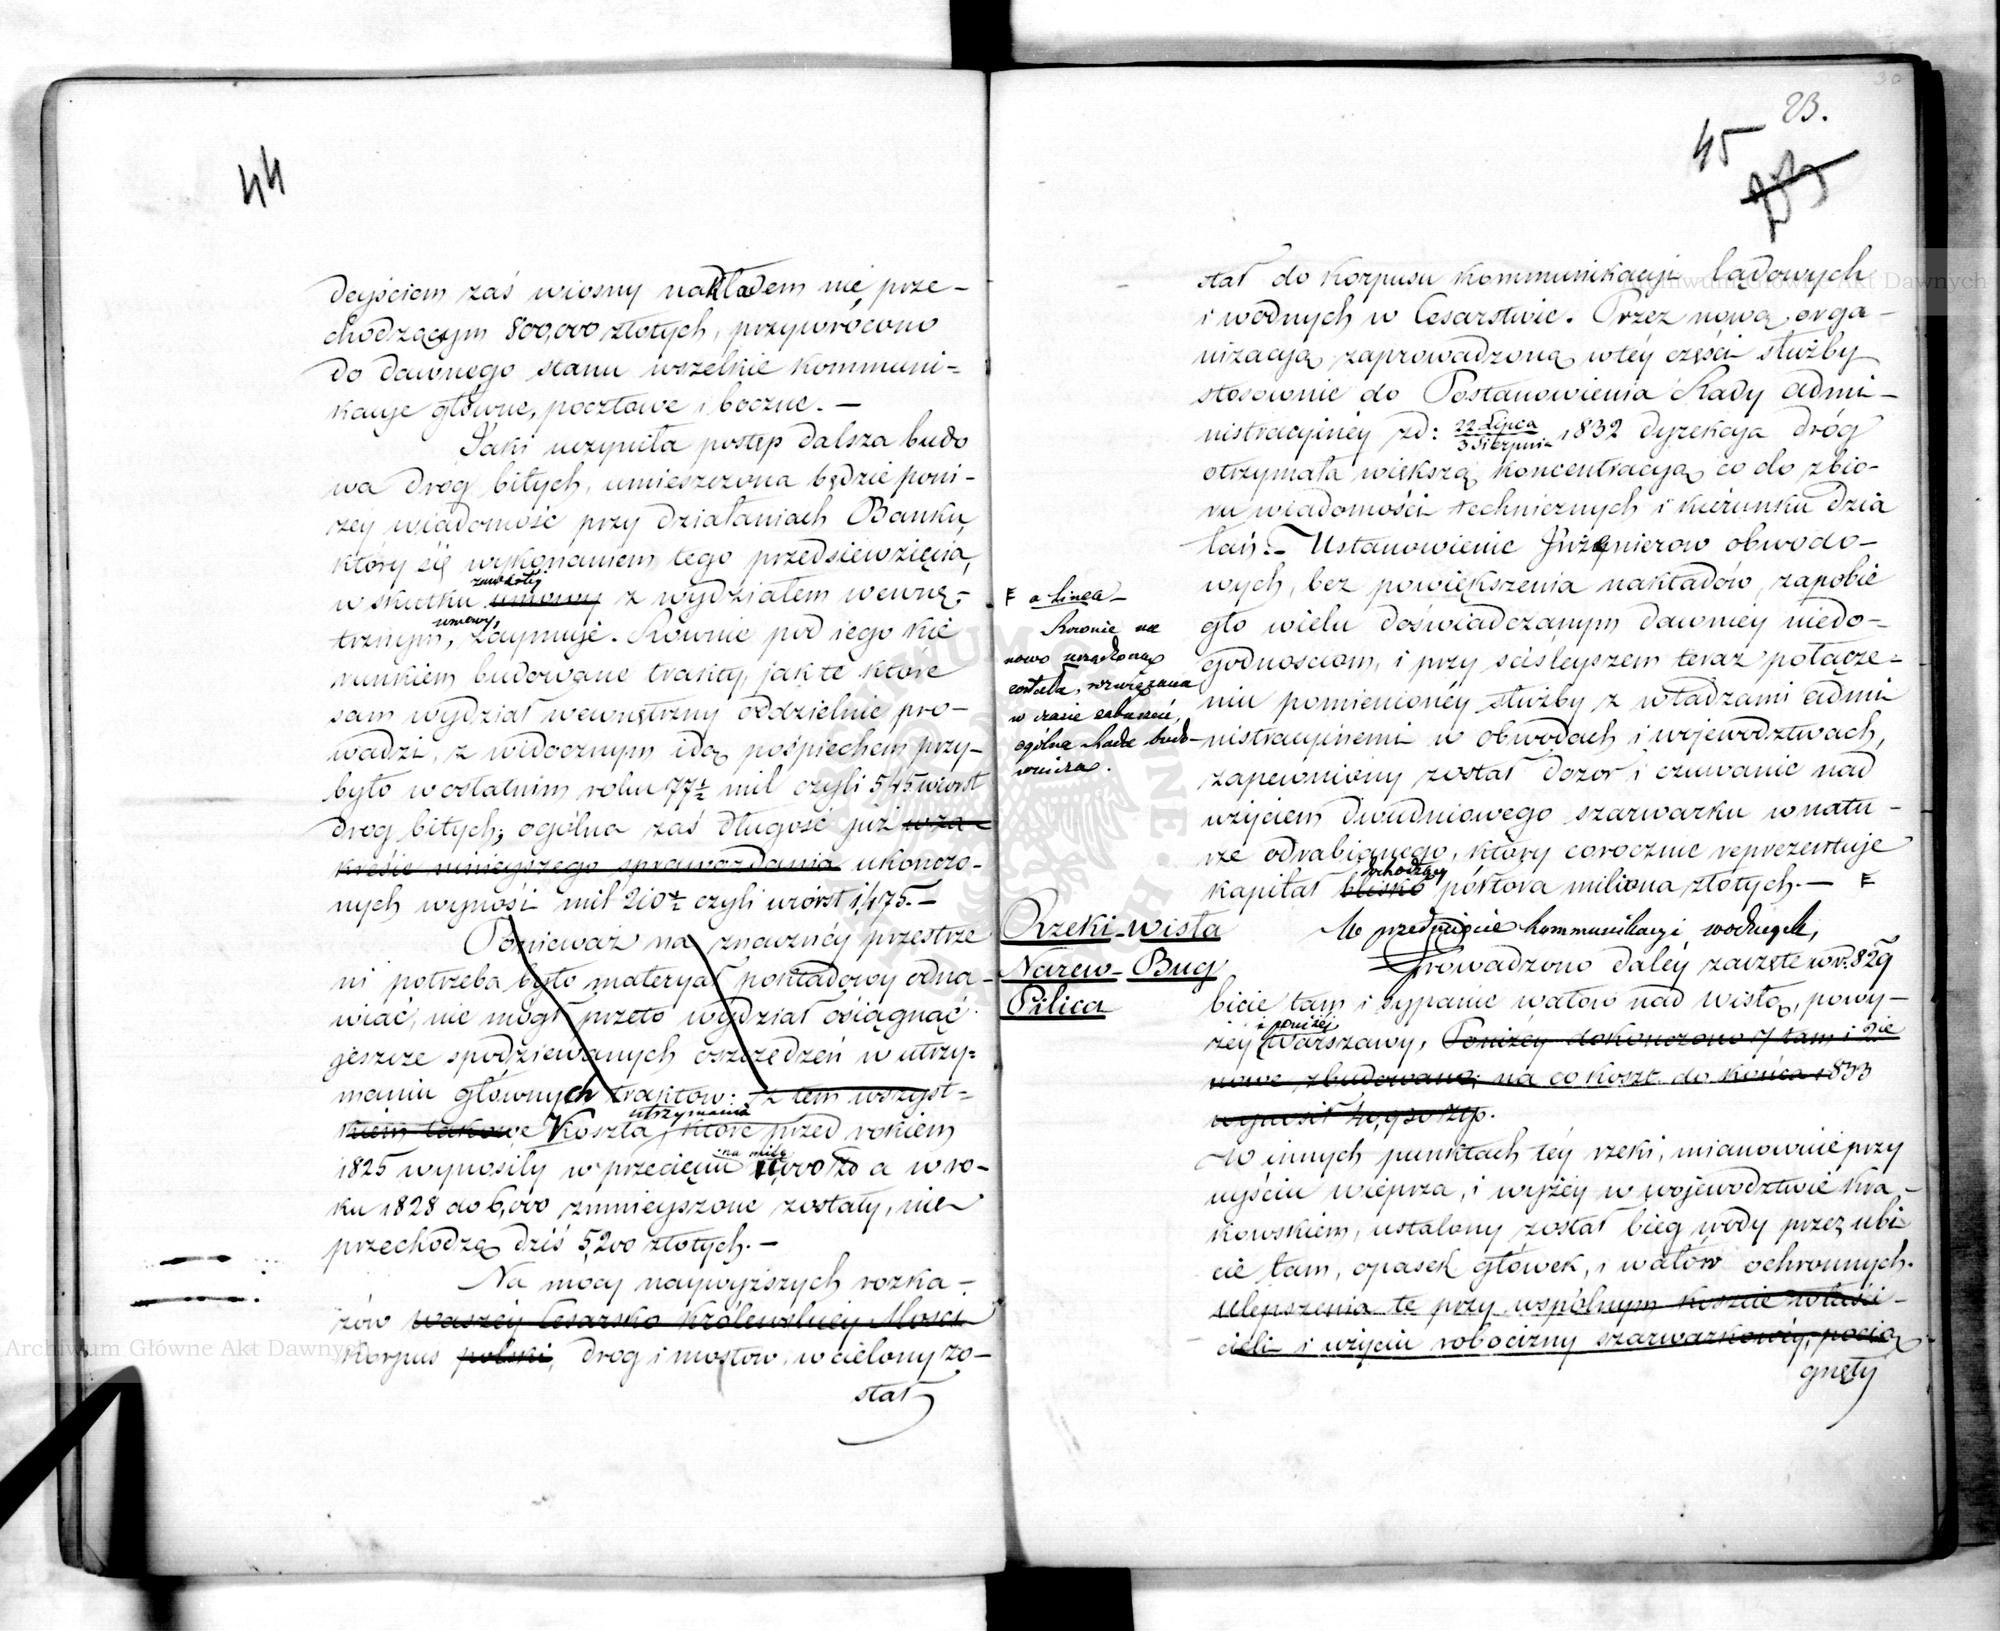 44
deyściem zaś wiosny nakładem nie prze-
chodzącym 800,000 złotych, przywrócono
do dawnego stanu wszelkie kommuni-
kacje główne, pocztowe i boczne. —
Jaki uczyniła postęp dalsza budo
wa dróg bitych, umieszczona będzie poni-
żey wiadomość przy działaniach Banku,
który się wykonaniem tego przedsięwzięcia,
zawartéy
w skutku umowy z wydziałem wewnę-
umowy
trznym, zaymuje. Równie pod jego kie
runkiem budowane trakty, jak te które
sam wydział wewnętrzny oddzielnie pro-
wadzi, z widocznym idą pośpiechem przy-
było w ostatnim roku 77½ mil czyli 545 wiorst
dróg bitych; ogólna zaś długość już w za-
kresie ninieyszego sprawozdania ukończo-
nych wynosi mil 210½ czyli wiorst 1,475. —
Ponieważ na znaczney przestrze
ni potrzeba było materyał pokładowy odna-
wiać, nie mógł przeto wydział osiągnąć
jeszcze spodziewanych oszczędzeń w utrzy-
maniu głównych traktow: z tem wszyst-
utrzymania
kiem takowe Koszta, które przed rokiem
na milę
1825 wynosiły w przecięciu 11,000 zł a w ro-
ku 1828 do 6,000 zmnieyszone zostały, nie
przechodzą dziś 5,200 złotych. —
Na mocy naywyższych rozka-
zów waszéy Cesarsko Królewskiey Mosci
Korpus polski, dróg i mostów, wcielony zo-
stał
30
23.
45
stał do Korpusu kommunikacji lądowych
i wodnych w Cesarstwie. Przez nową orga-
nizacją zaprowadzoną w téy części służby
stosownie do Postanowienia Rady Admi-
nistracyinéy zd: 22 Lipca / 3 Sierpnia 1832 dyrekcja dróg
otrzymała większą koncentracją co do zbio-
ru wiadomości technicznych i kierunku dzia
łań. — Ustanowienie Inżenierow obwodo-
wych, bez powiększenia nakładów, zapobie
gło wielu doświadczanym dawniéy niedo-
godnosciom, i przy ściśleyszem teraz połącze-
niu pomienionéy służby z władzami admi
nistracyinemi w obwodach i województwach,
zapewniony został dozór i czuwanie nad
użyciem dwudniowego szarwarku w natu-
rze odrabianego, który corocznie reprezentuje
dochodzący
kapitał blisko półtora miliona złotych. — F
F a linea —
Rownie na
nowo urządzoną
została, rozwiązana
w czasie zaburzeń,
ogólna Rada budo-
wnicza.
Rzeki Wisła
Narew - Bug
Pilica
W przedmiocie kommunikacji wodnych,
Prowadzono daléy zaczęte w r. 829
bicie tam i sypanie wałów nad wisłą, powy-
i poniżej
żéy Warszawy, Poniżéy dokończono 7 tam i 2ie
nowe zbudowano; na co koszt do końca 1833
wynosił 40,930 złp.
W innych punktach téy rzeki, mianowicie przy
uyściu wieprza, i wyżéy w województwie kra-
kowskiem, ustalony został bieg wody przez ubi
cie tam, opasek główek, i wałów ochronnych.
ulepszenia te przy wspólnym koszcie właści-
cieli i użyciu robocizny szarwarkowéy, pocią
gnęły